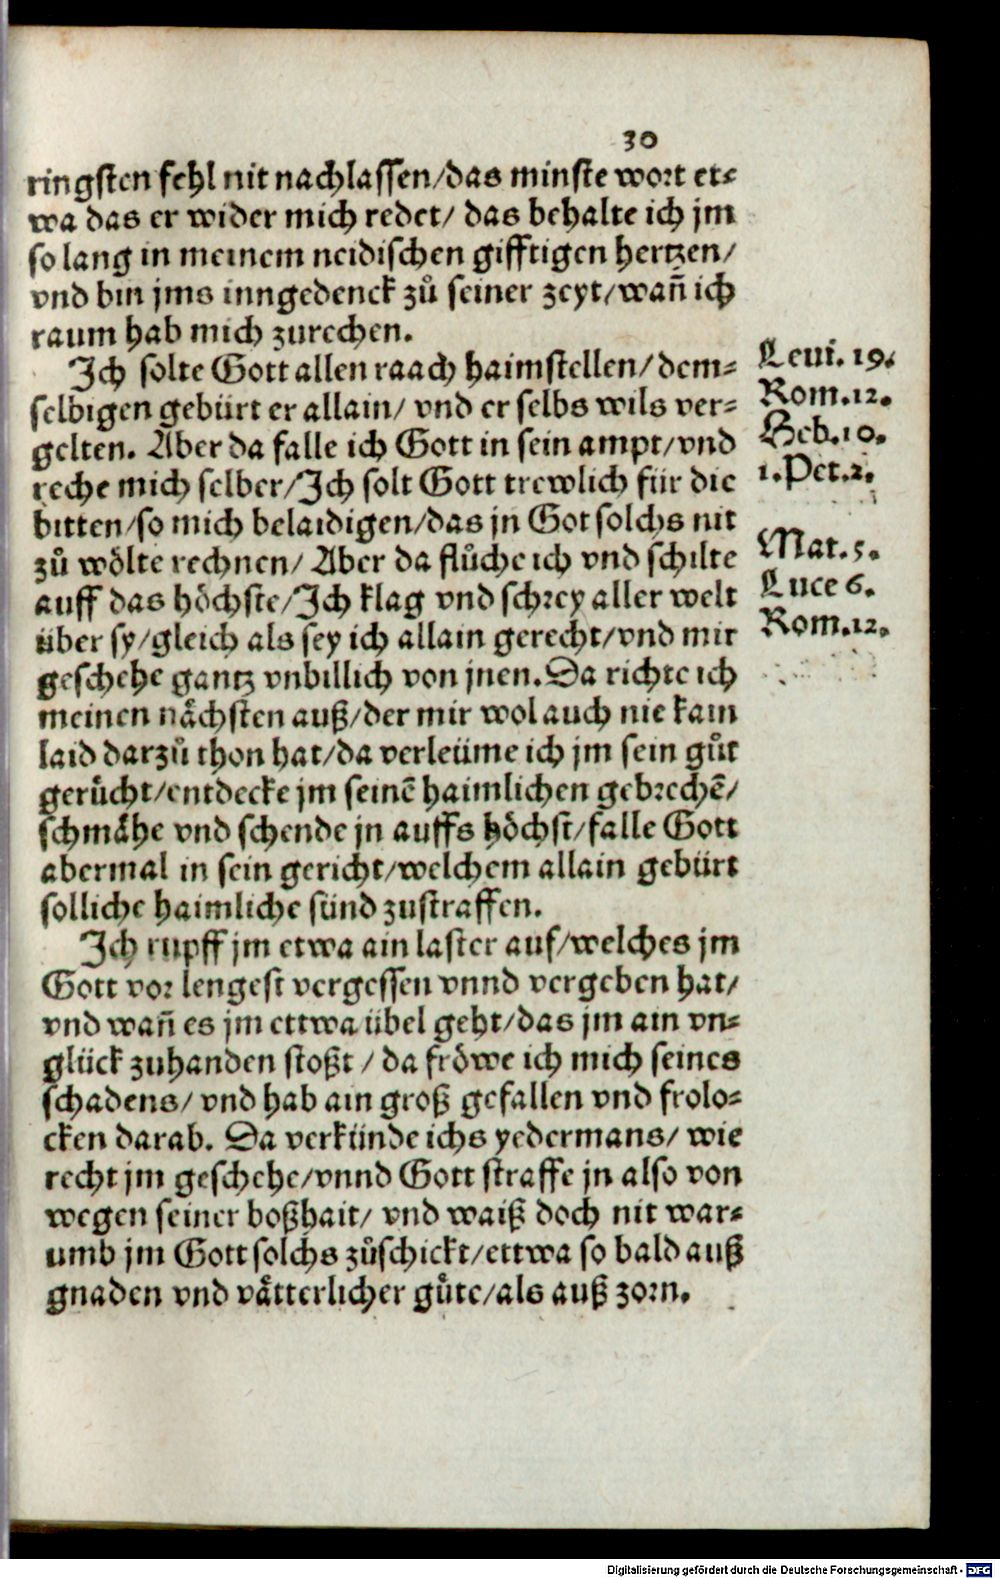 30
ringsten fehl nit nachlassen/das minste wort et⸗
wa das er wider mich redet/ das behalte ich jm
so lang in meinem neidischen gifftigen hertzen/
vnd bin jms inngedenck zů seiner zeyt/wañ ich
raum hab mich zurechen.
Ich solte Gott allen raach haimstellen/dem⸗
selbigen gebürt er allain/ vnd er selbs wils ver⸗
gelten. Aber da falle ich Gott in sein ampt/vnd
reche mich selber/Ich solt Gott trewlich für die
bitten/so mich belaidigen/das jn Got solchs nit
zů wölte rechnen/ Aber da flůche ich vnd schilte
auff das höchste/Ich klag vnd schrey aller welt
über sy/gleich als sey ich allain gerecht/vnd mir
geschehe gantz vnbillich von jnen. Da richte ich
meinen nächsten auß/der mir wol auch nie kain
laid darzů thon hat/da verleüme ich jm sein gůt
gerücht/entdecke jm seinē haimlichen gebrechē/
schmähe vnd schende jn auffs höchst/falle Gott
abermal in sein gericht/welchem allain gebürt
solliche haimliche sünd zustraffen.
Ich rupff jm etwa ain laster auf/welches jm
Gott vor lengest vergessen vnnd vergeben hat/
vnd wañ es jm ettwa übel geht/das jm ain vn⸗
glück zuhanden stoßt / da fröwe ich mich seines
schadens/ vnd hab ain groß gefallen vnd frolo⸗
cken darab. Da verkünde ichs yedermans/ wie
recht jm geschehe/vnnd Gott straffe jn also von
wegen seiner boßhait/ vnd waiß doch nit war⸗
umb jm Gott solchs zůschickt/ettwa so bald auß
gnaden vnd vätterlicher güte/als auß zorn.
Leui. 19.
Rom. 12.
Heb. 10.
1. Pet. 2.
Mat. 5.
Luce 6.
Rom. 12.
Digitalisierung gefördert durch die Deutsche Forschungsgemeinschaft - DFG